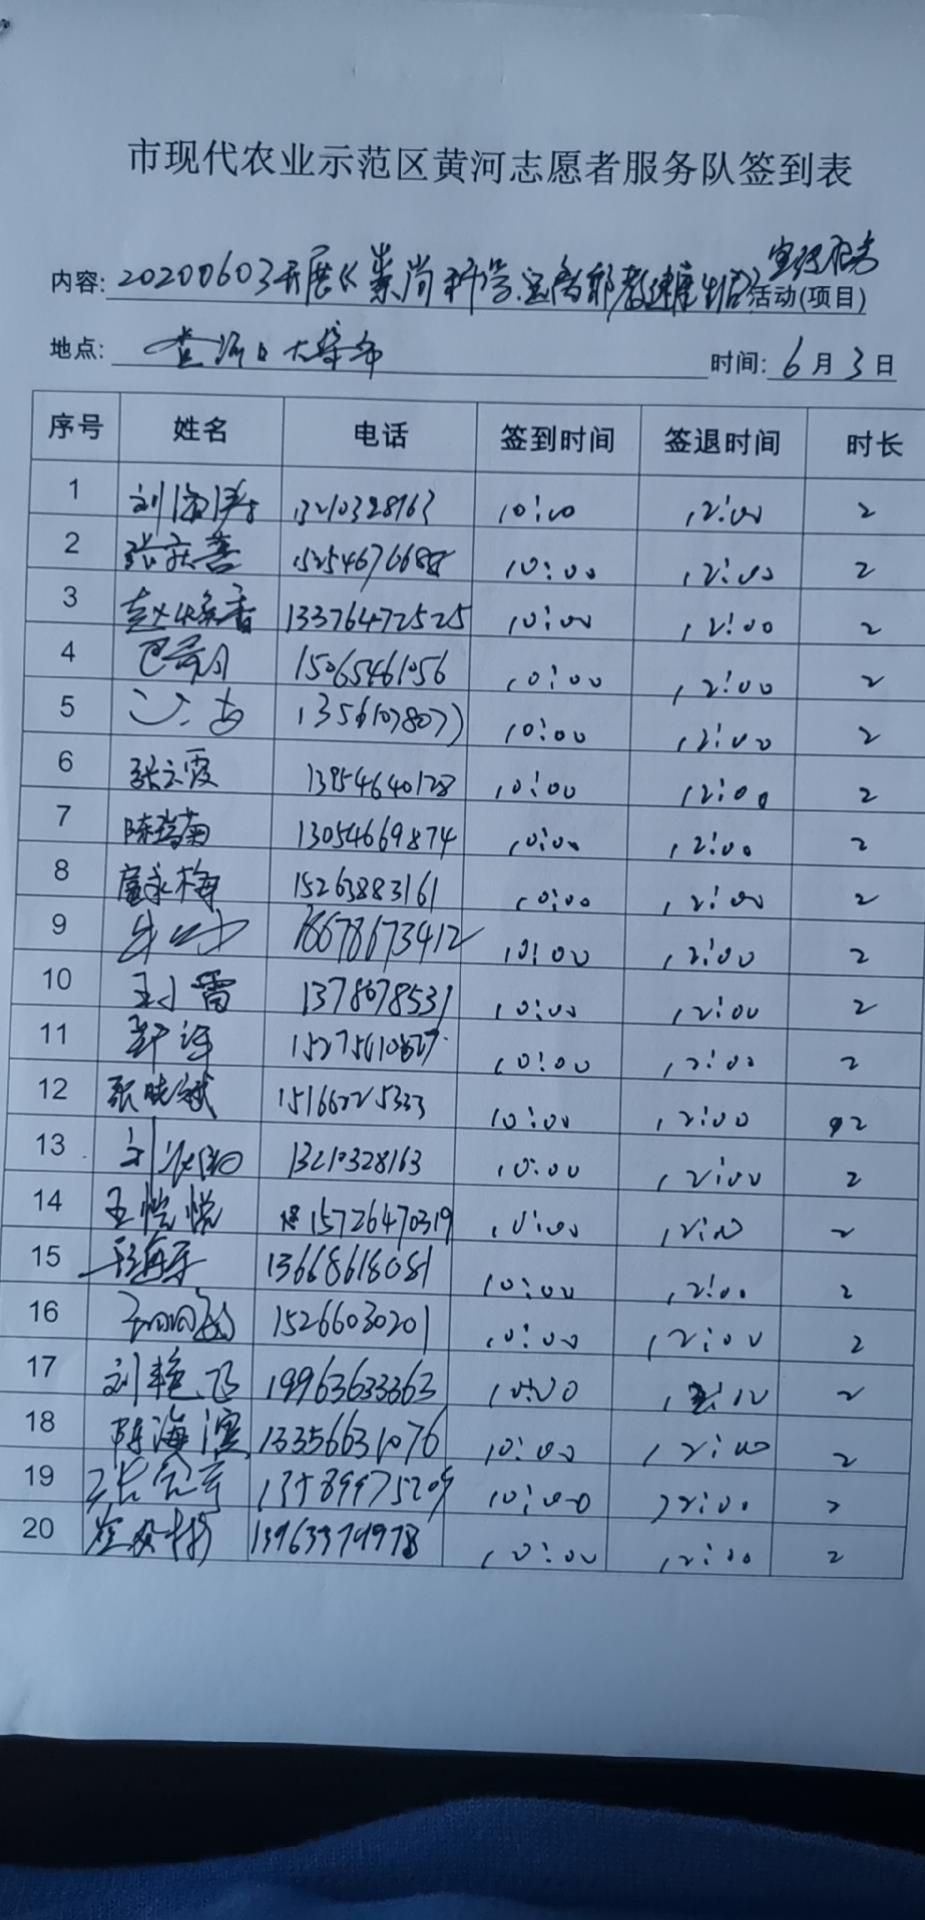 市现代农业示范区黄河志愿者服务队签到表
宣传服务
内容: 20200603开展《崇尚科学 健康生活》活动(项目)
地点: 黄河口大集市 时间: 6月3日
序号 姓名 电话 签到时间 签退时间 时长
1 刘海涛 13210328163 10:00 12:00 2
2 张庆善 15254676688 10:00 12:00 2
3 赵焕香 13376472525 10:00 12:00 2
4 巴 15065461056 10:00 12:00 2
5 10:00 12:00 2
6 张文霞 13954640128 10:00 12:00 2
7 陈瑞菊 13054669874 10:00 12:00 2
8 扈永梅 15263883161 10:00 12:00 2
9 18678673412 10:00 12:00 2
10 王小雷 1378678531 10:00 12:00 2
11 10:00 12:00 2
12 张晓斌 15166225333 10:00 12:00 2
13 刘 13210328163 10:00 12:00 2
14 王悦悦 15726470319 10:00 12:00 2
15 13668618081 10:00 12:00 2
16 15266030201 10:00 12:00 2
17 刘艳飞 19963633363 10:00 12:00 2
18 陈海滨 13356631076 10:00 12:00 2
19 张 13589975209 10:00 12:00 2
20 13963379978 10:00 12:00 2